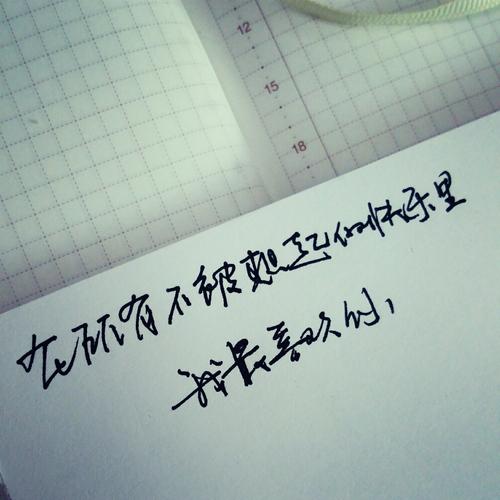 12
15
18
在所有不被想起的快乐里
我最喜欢你